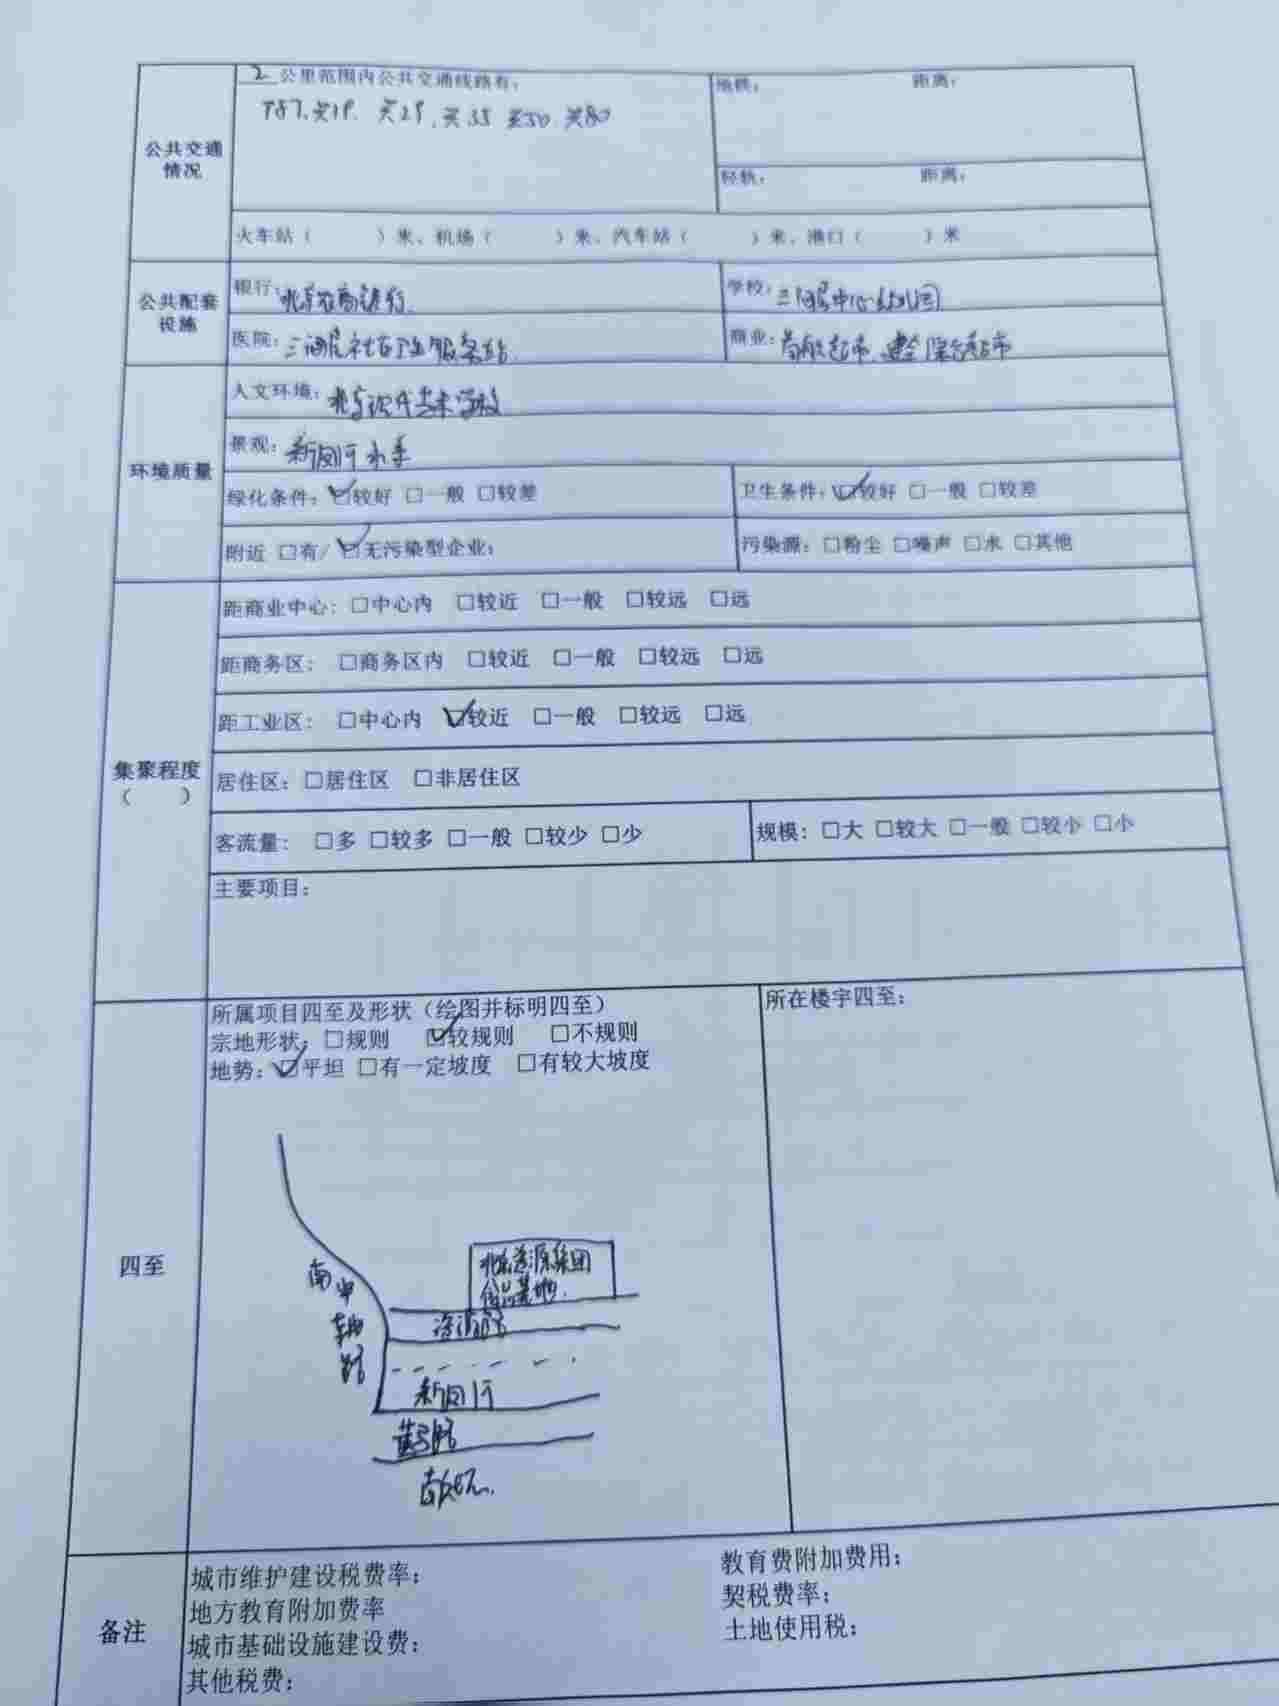 2 公里范围内公共交通线路有:
地铁: 距离:
兴19、兴29、兴38 兴50、兴80
公共交通情况
轻轨: 距离:
火车站( )米、机场( )米、汽车站( )米、港口( )米
公共配套设施
银行: 北京农商银行
学校: 中心幼儿园
医院: 服务站
商业: 超市、综合超市
环境质量
人文环境: 北京现代艺术学校
景观: 新凤河水系
绿化条件: ☑较好 □一般 □较差
卫生条件: ☑较好 □一般 □较差
附近 □有/ ☑无污染型企业:
污染源: □粉尘 □噪声 □水 □其他
集聚程度
( )
距商业中心: □中心内 □较近 □一般 □较远 □远
距商务区: □商务区内 □较近 □一般 □较远 □远
距工业区: □中心内 ☑较近 □一般 □较远 □远
居住区: □居住区 □非居住区
客流量: □多 □较多 □一般 □较少 □少
规模: □大 □较大 □一般 □较小 □小
主要项目:
四至
所属项目四至及形状(绘图并标明四至)
宗地形状: □规则 ☑较规则 □不规则
地势: ☑平坦 □有一定坡度 □有较大坡度
所在楼宇四至:
集团
基地.
南中轴路
新凤河
备注
城市维护建设税费率:
教育费附加费用:
地方教育附加费率
契税费率:
城市基础设施建设费:
土地使用税:
其他税费: